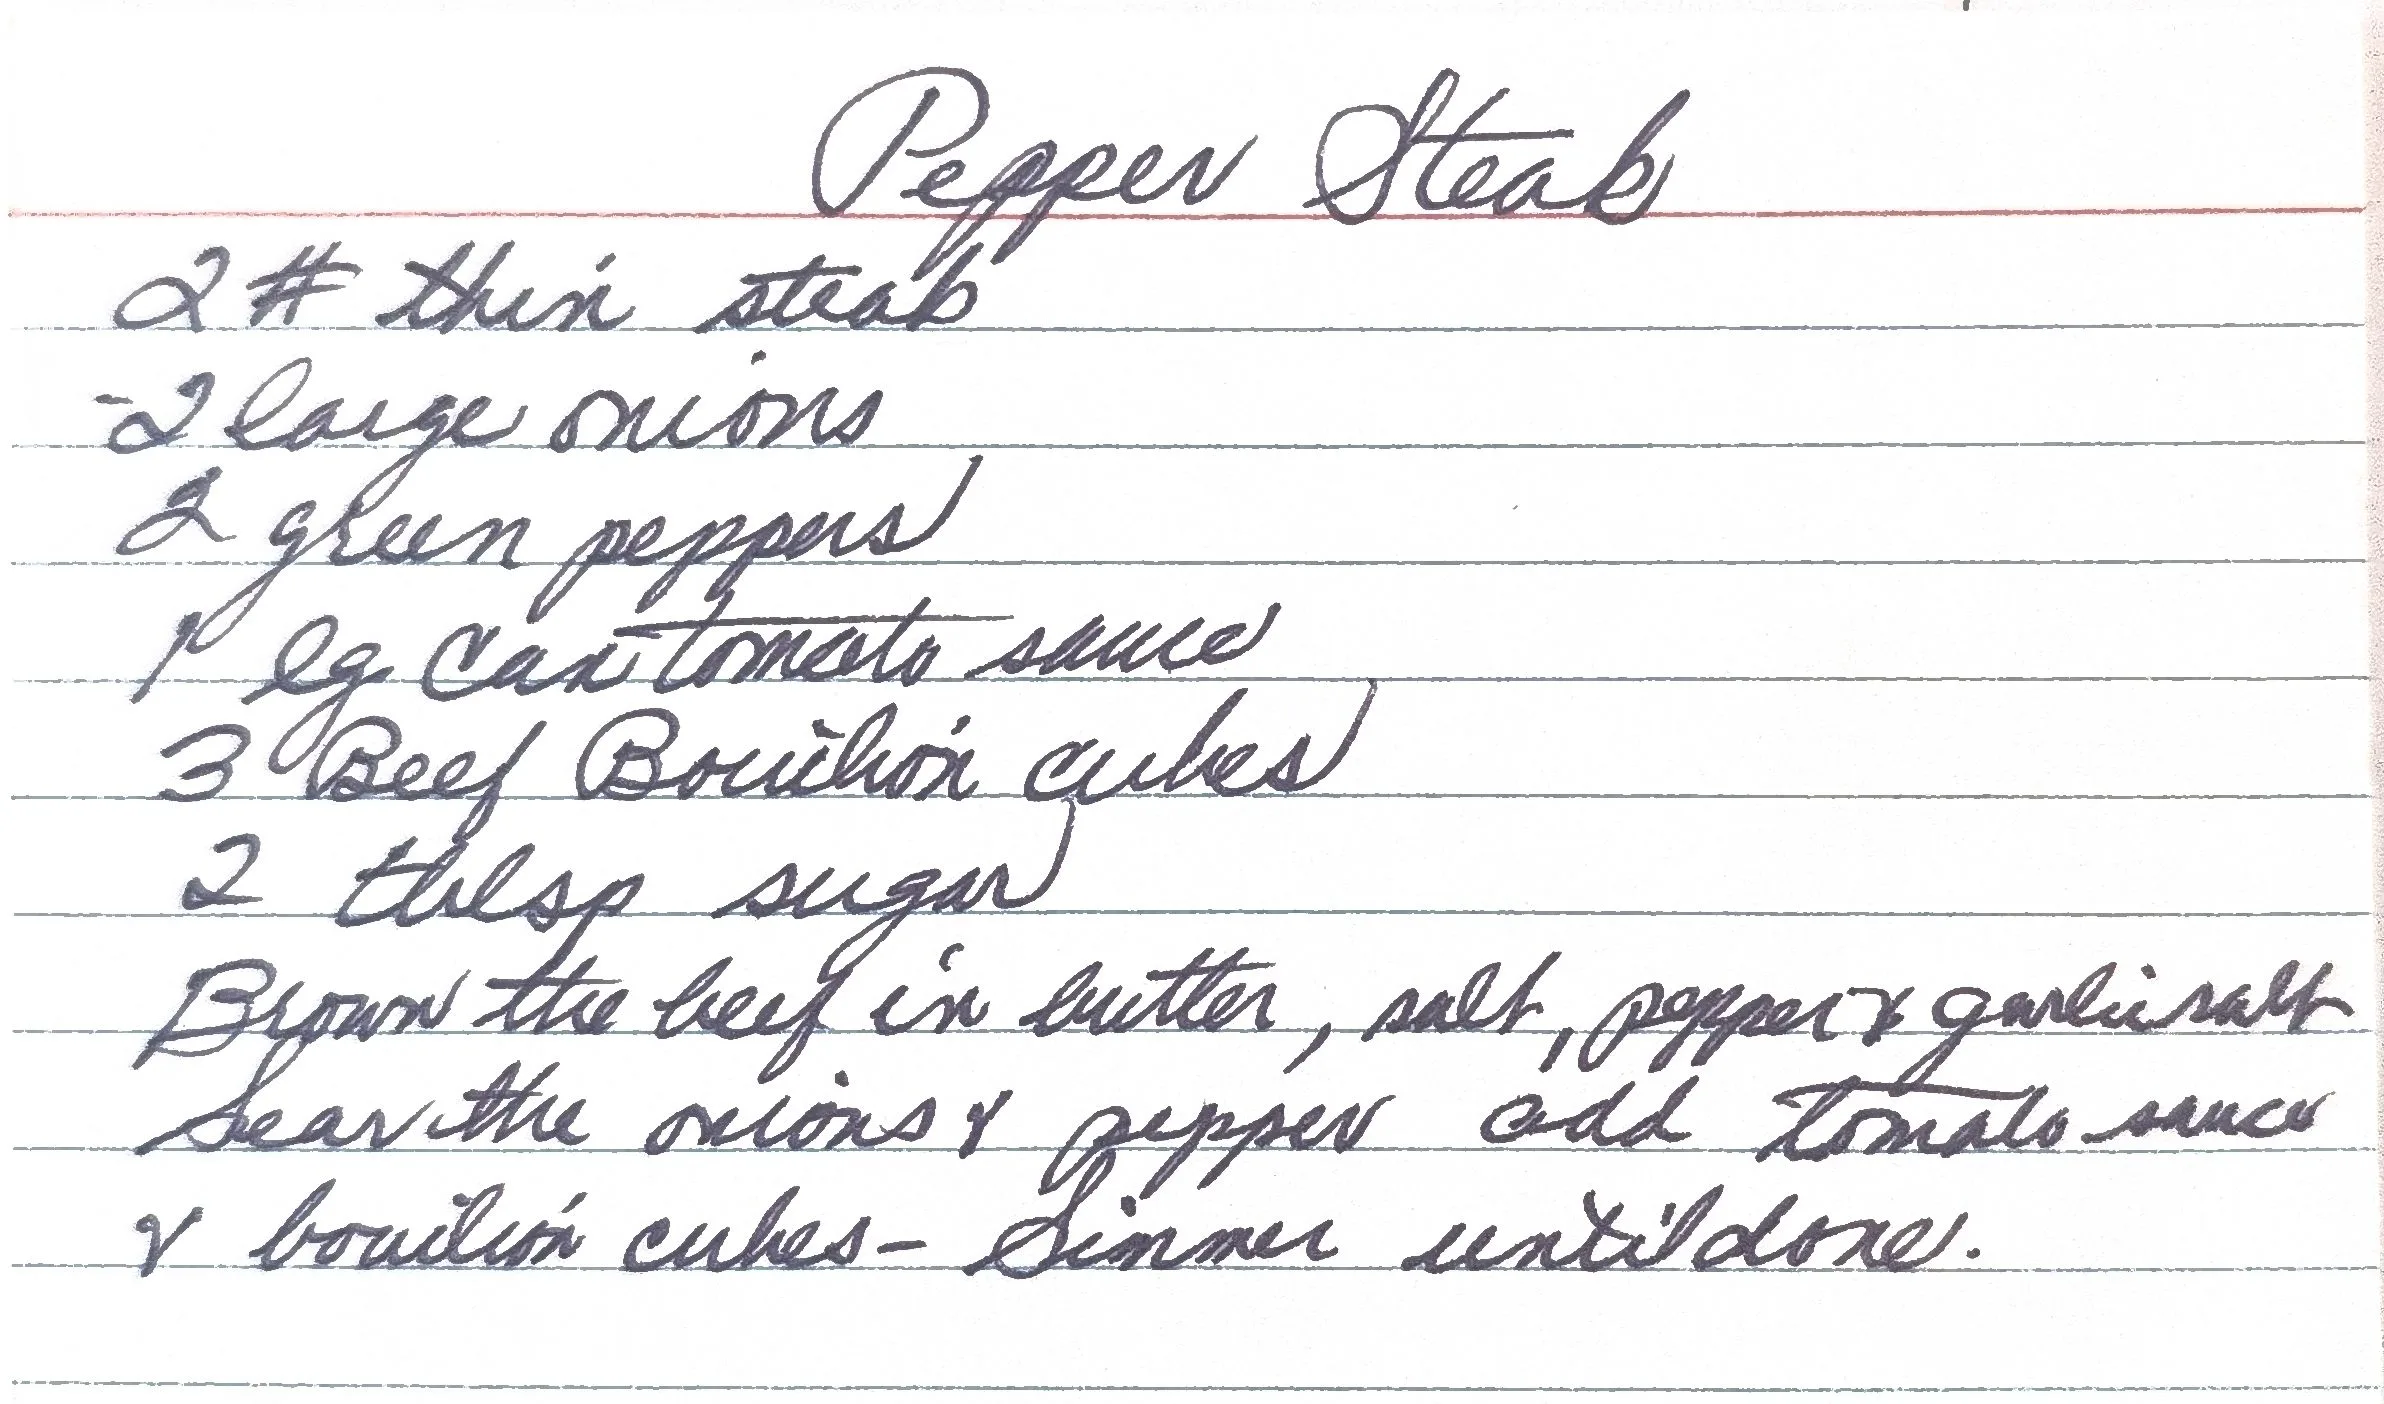 Pepper Steak
2 # thin steak
2 large onions
2 green peppers
1 lg can tomato sauce
3 Beef Bouilion cubes
2 tblsp sugar
Brown the beef in butter, salt, pepper & garlic salt
Sear the onions & pepper add tomato sauce
& bouilion cubes - Simmer until done.